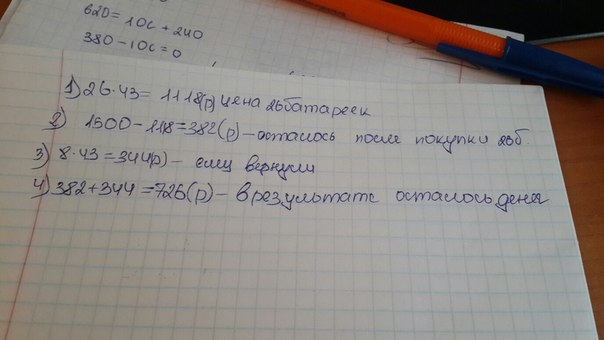 620 = 10c + 240
380 - 10c = 0
1) 26·43 = 1118(р) цена 26батареек
2) 1500 - 1118 = 382(р) - осталось после покупки 26б.
3) 8·43 = 344(р) - ему вернули
4) 382 + 344 = 726(р) - в результате осталось денег